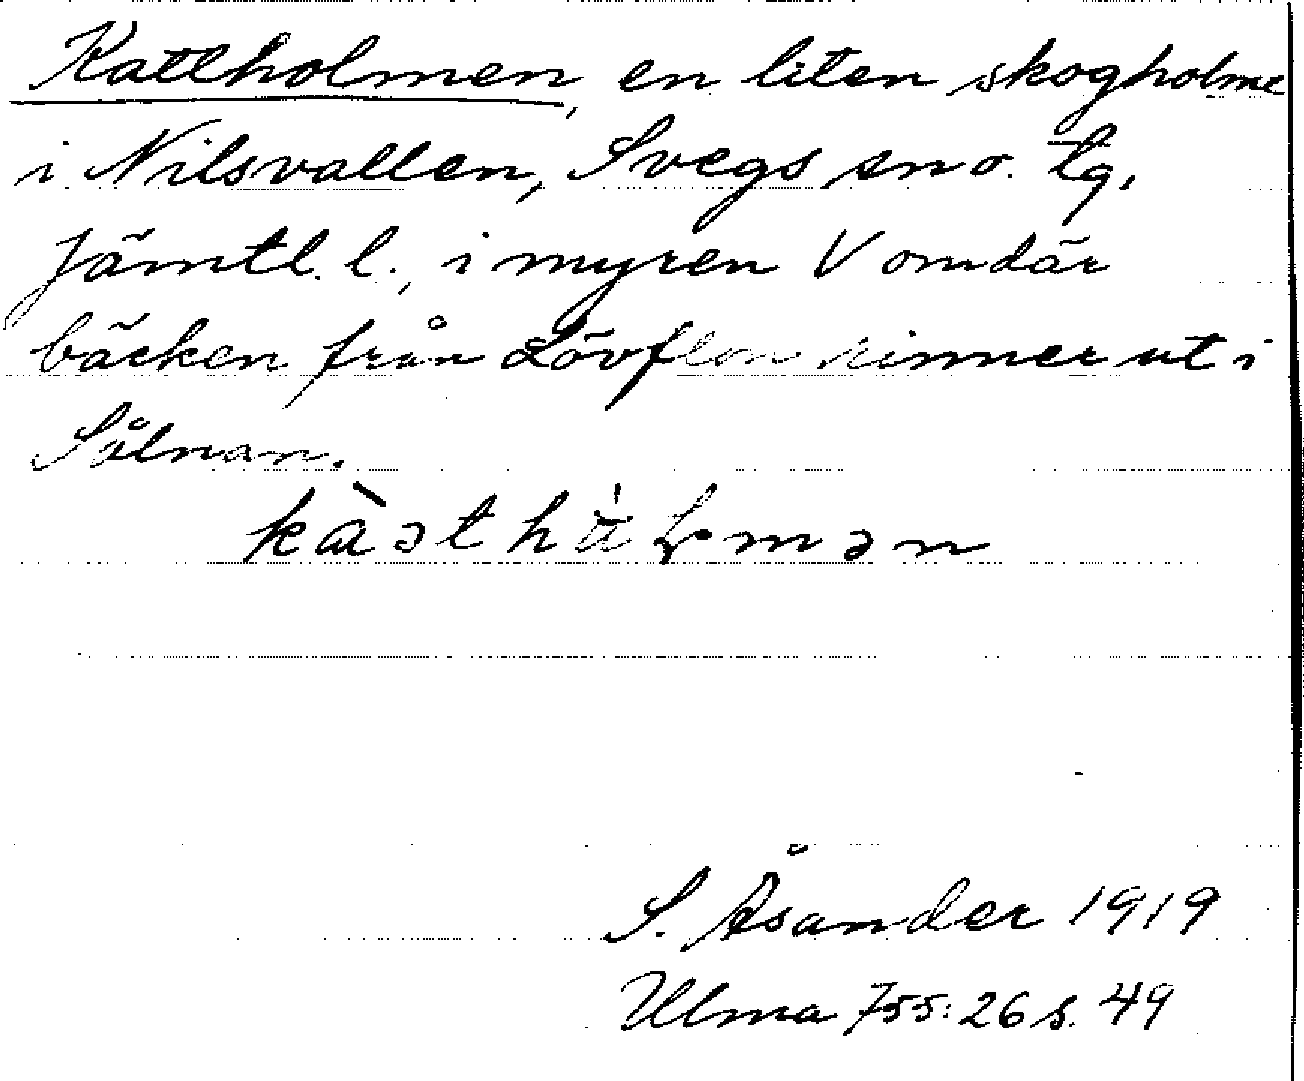 Kattholmen, en liten skogholme
i Nilsvallen, Svegs sn o. tg,
Jämtl. l., i myren V om där
bäcken från Lövflon rinner ut i
Sålnan.
S. Åsander 1919
Ulma 755:26 s. 49